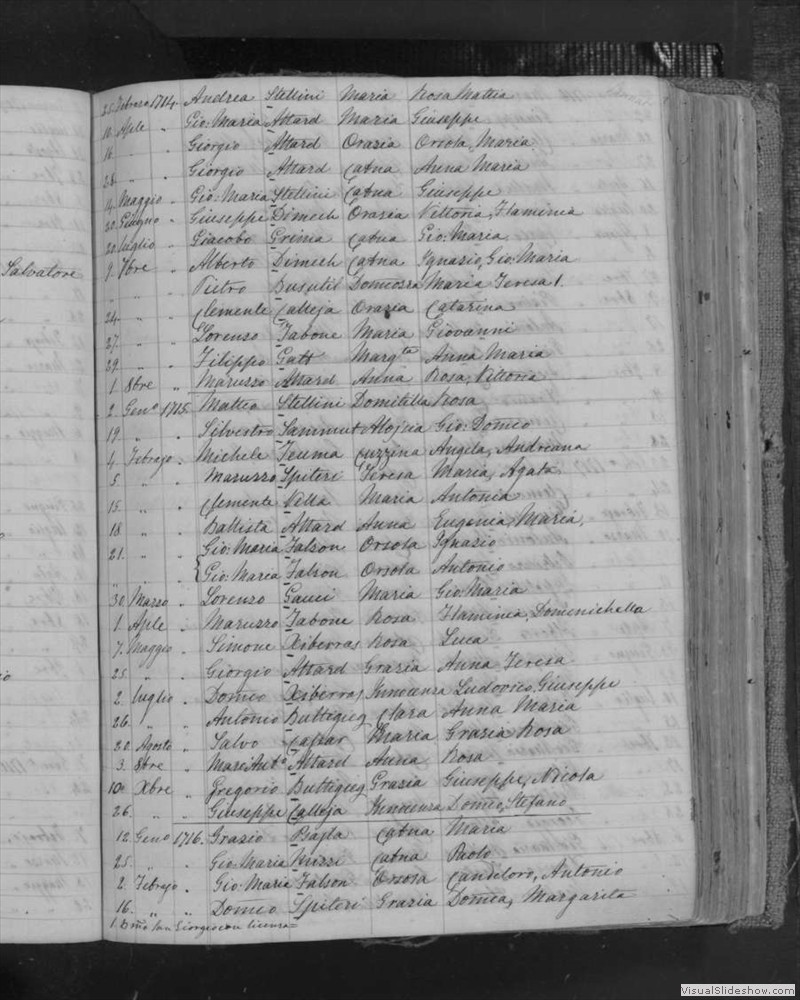 Salvatore
25 Febraro 1714 Andrea Stellini Maria Rosa Mattia
10 Aple " Gio: Maria Attard Maria Giuseppe
16 " " Giorgio Attard Orazia Orsola, Maria
28 " " Giorgio Attard Catna Anna Maria
14 Maggio " Gio: Maria Stellini Catna Giuseppe
20 Giugno " Giuseppe Dimech Orazia Vittoria, Flaminea
20 luglio " Giacobo Grima Catna Gio: Maria
9 7bre " Alberto Dimech Catna Ignazio, Gio: Maria
" " " Pietro Busutil Maria Teresa 1.
24 " " Clemente Calleja Orazia Catarina
27 " " Lorenzo Zabone Maria Giovanni
29 " " Filippo Gatt Margta Anna Maria
1 8bre " Maruzzo Attard Anna Rosa, Vittoria
2 Geno 1715 Matteo Stellini Domitilla Rosa
19 " " Silvestro Sammut Alojsia Gio: Domeo
4 Febrajo " Michele Teuma Cuzzina Angela, Andreana
5 " " Maruzzo Spiteri Teresa Maria, Agata
15 " " Clemente Vella Maria Antonia
18 " " Battista Attard Anna Eugenia, Maria
21 " " Gio: Maria Falson Orsola Ignazio
" " " Gio: Maria Falson Orsola Antonio
30 Marzo " Lorenzo Gauci Maria Gio: Maria
1 Aple " Maruzzo Zabone Rosa Flaminia, Domenichella
7 Maggio " Simone Xiberras Rosa Luca
25 " " Giorgio Attard Grazia Anna Teresa
2 luglio " Domeo Xiberras Innocenza Ludovico, Giuseppe
26 " " Antonio Buttigieg Clara Anna Maria
20 Agosto " Salvo Cassar Maria Grazia Rosa
3 8bre " Marc'Anto Attard Anna Rosa
10 Xbre " Gregorio Buttigieg Grazia Giuseppe, Nicola
26 " " Giuseppe Calleja Innocenza Domeo, Stefano
12 Geno 1716 Grazio Bajla Catna Maria
25 " " Gio: Maria Catna Paolo
2 Febrajo " Gio: Maria Falson Orsola Candeloro, Antonio
16 " " Domeo Spiteri Grazia Domea, Margarita
San Giorgio con licenza
VisualSlideshow.com